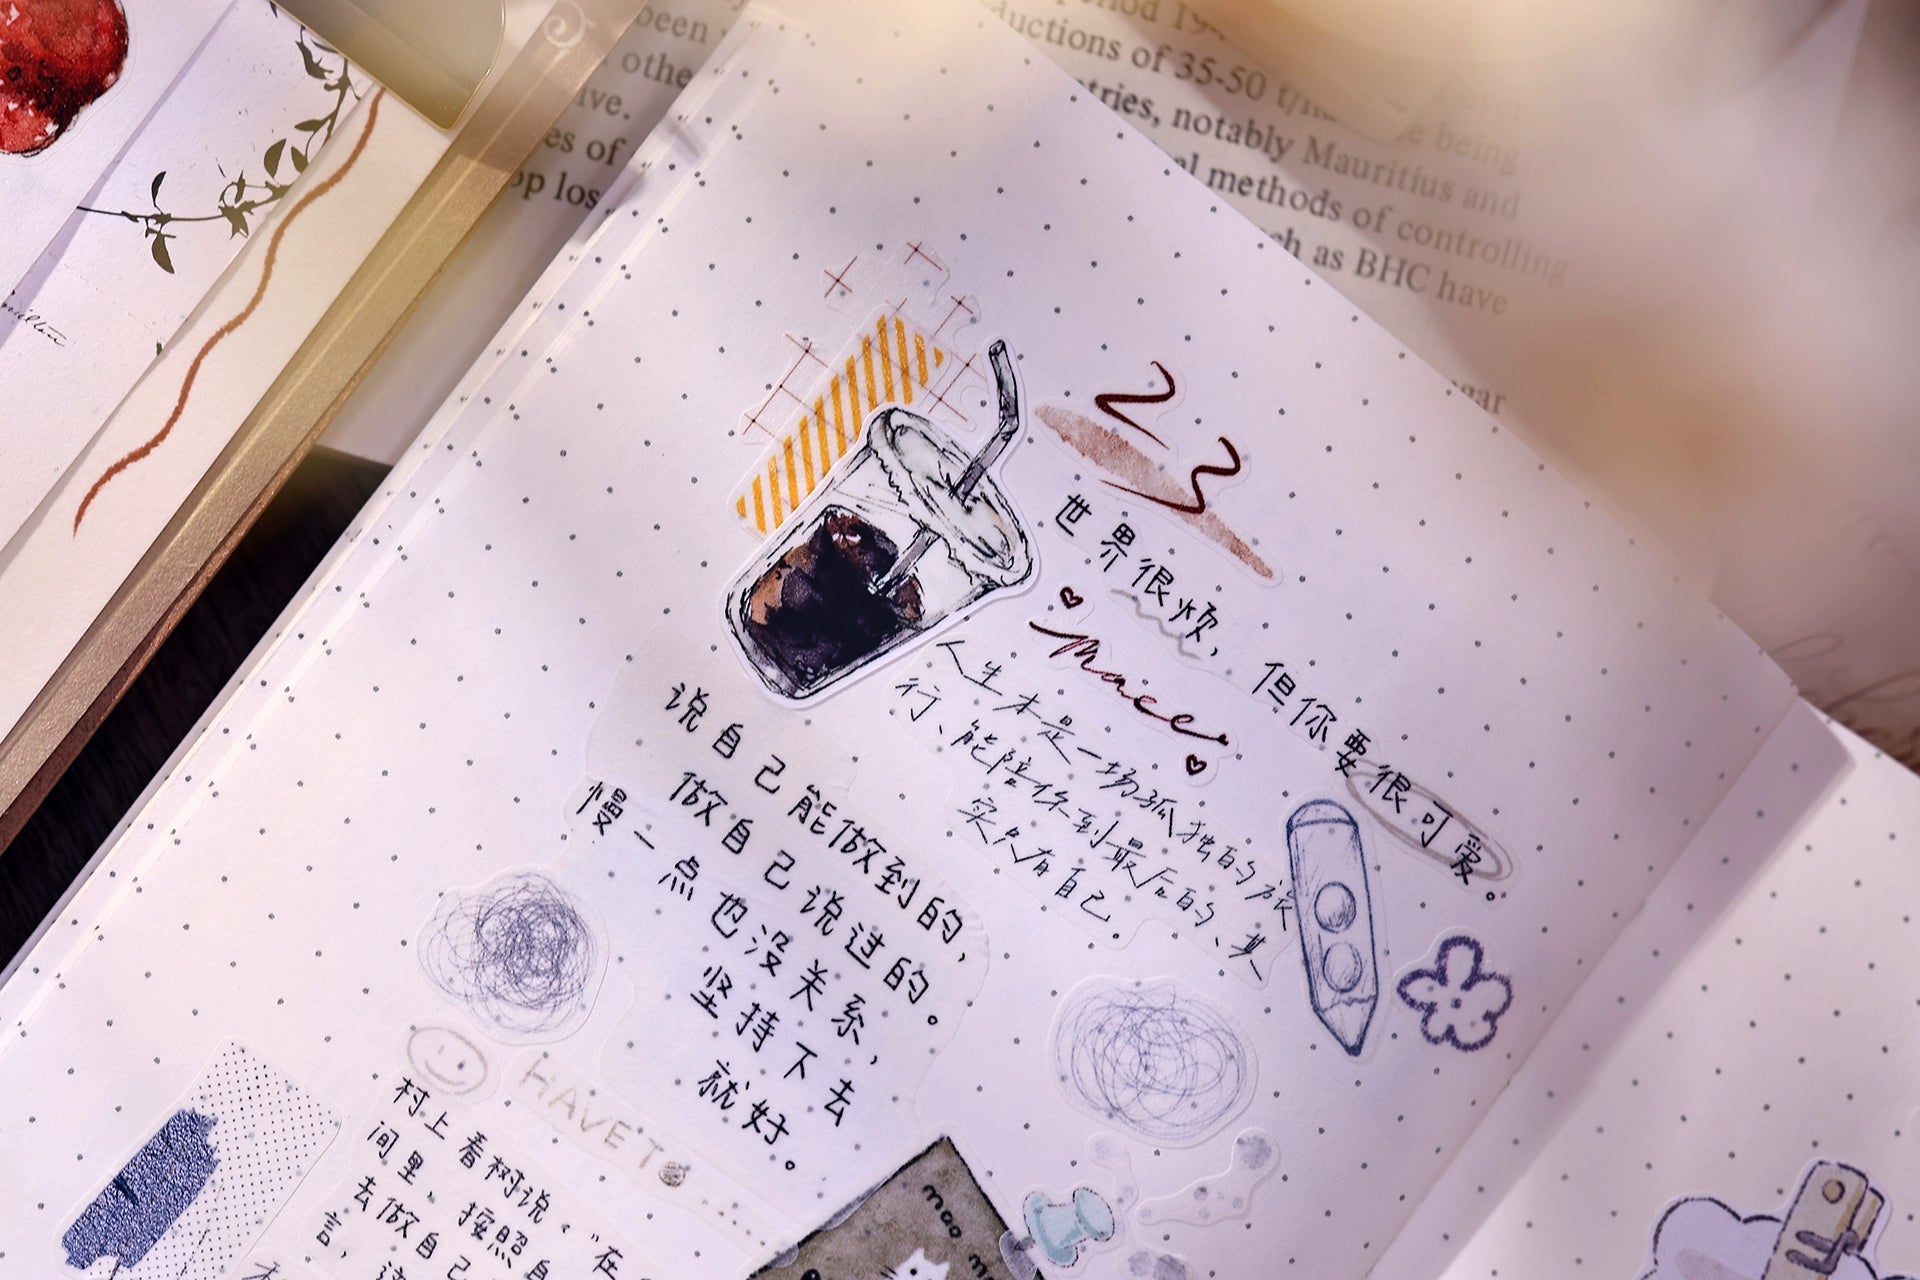 been
othe
ive.
es of
op los
period 19
ductions of 35-50 t/h
over
tries, notably Mauritius and
being
al methods of controlling
ch as BHC have
gar
23
世界很烦，但你要很可爱。
人生本是一场孤独的旅
行、能陪你到最后的、其
实只有自己.
说自己能做到的，
做自己说过的。
慢一点也没关系，
坚持下去
就好。
HAVE T
村上春树说，"在
间里，按照自
去做自己
言，
moo